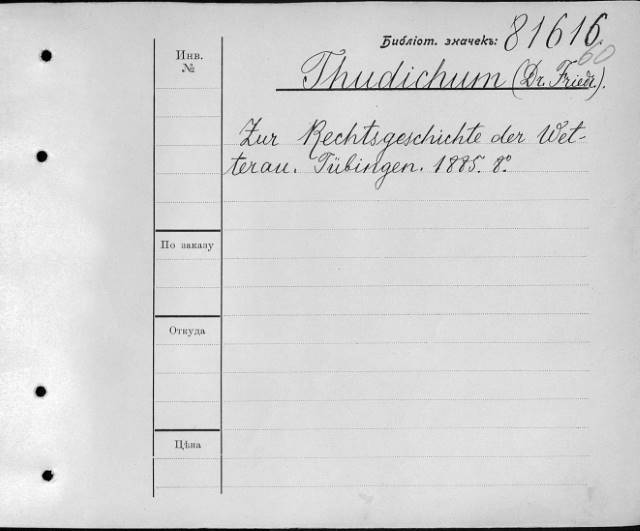 Библіот. значекъ: 81616
60
Инв.
№
Thudichum (Dr. Friedr.).
Zur Rechtsgeschichte der Wet-
terau. Tübingen. 1885. 8º.
По заказу
Откуда
Цѣна